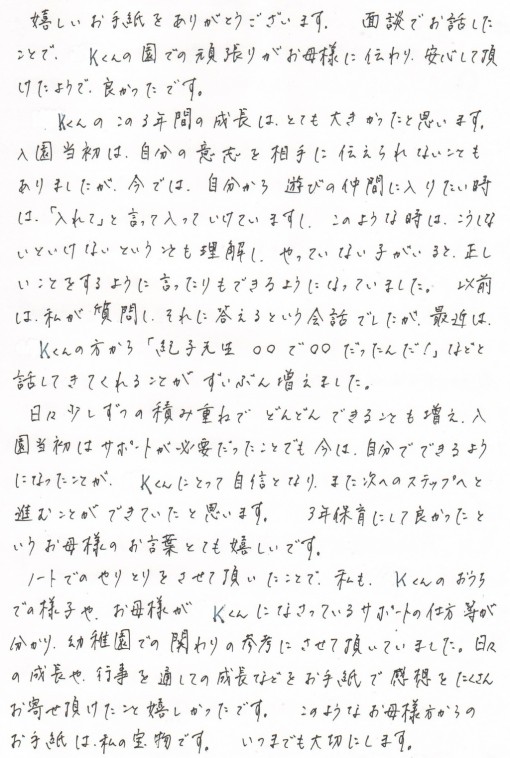 嬉しいお手紙をありがとうございます。　面談でお話した
ことで、Kくんの園での頑張りがお母様に伝わり、安心して頂
けたようで、良かったです。
Kくんのこの3年間の成長は、とても大きかったと思います。
入園当初は、自分の意志を相手に伝えられないことも
ありましたが、今では、自分から遊びの仲間に入りたい時
は、「入れて」と言って入っていけていますし、このような時は、こうしな
いといけないということも理解し、やっていない子がいると、正し
いことをするように言ったりもできるようになっていました。　以前
は、私が質問し、それに答えるという会話でしたが、最近は、
Kくんの方から「紀子先生　○○で○○だったんだ!」などと
話してきてくれることがずいぶん増えました。
日々少しずつの積み重ねでどんどんできることも増え、入
園当初はサポートが必要だったことでも今は、自分でできるよう
になったことが、Kくんにとって自信となり、また次へのステップへと
進むことができていたと思います。　3年保育にして良かったと
いうお母様のお言葉とても嬉しいです。
ノートでのやりとりをさせて頂いたことで、私も、Kくんのおうち
での様子や、お母様がKくんになさっているサポートの仕方等が
分かり、幼稚園での関わりの参考にさせて頂いていました。日々
の成長や、行事を通しての成長などをお手紙で感想をたくさん
お寄せ頂けたこと嬉しかったです。　このようなお母様方からの
お手紙は、私の宝物です。　いつまでも大切にします。